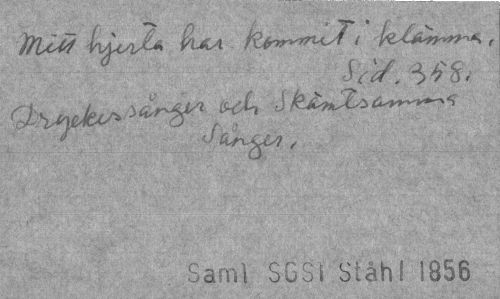 Mitt hjerta har kommit i klämma.
Sid. 358.
Dryckessånger och Skämtsamma
Sånger.
Saml SGS1 Ståhl 1856